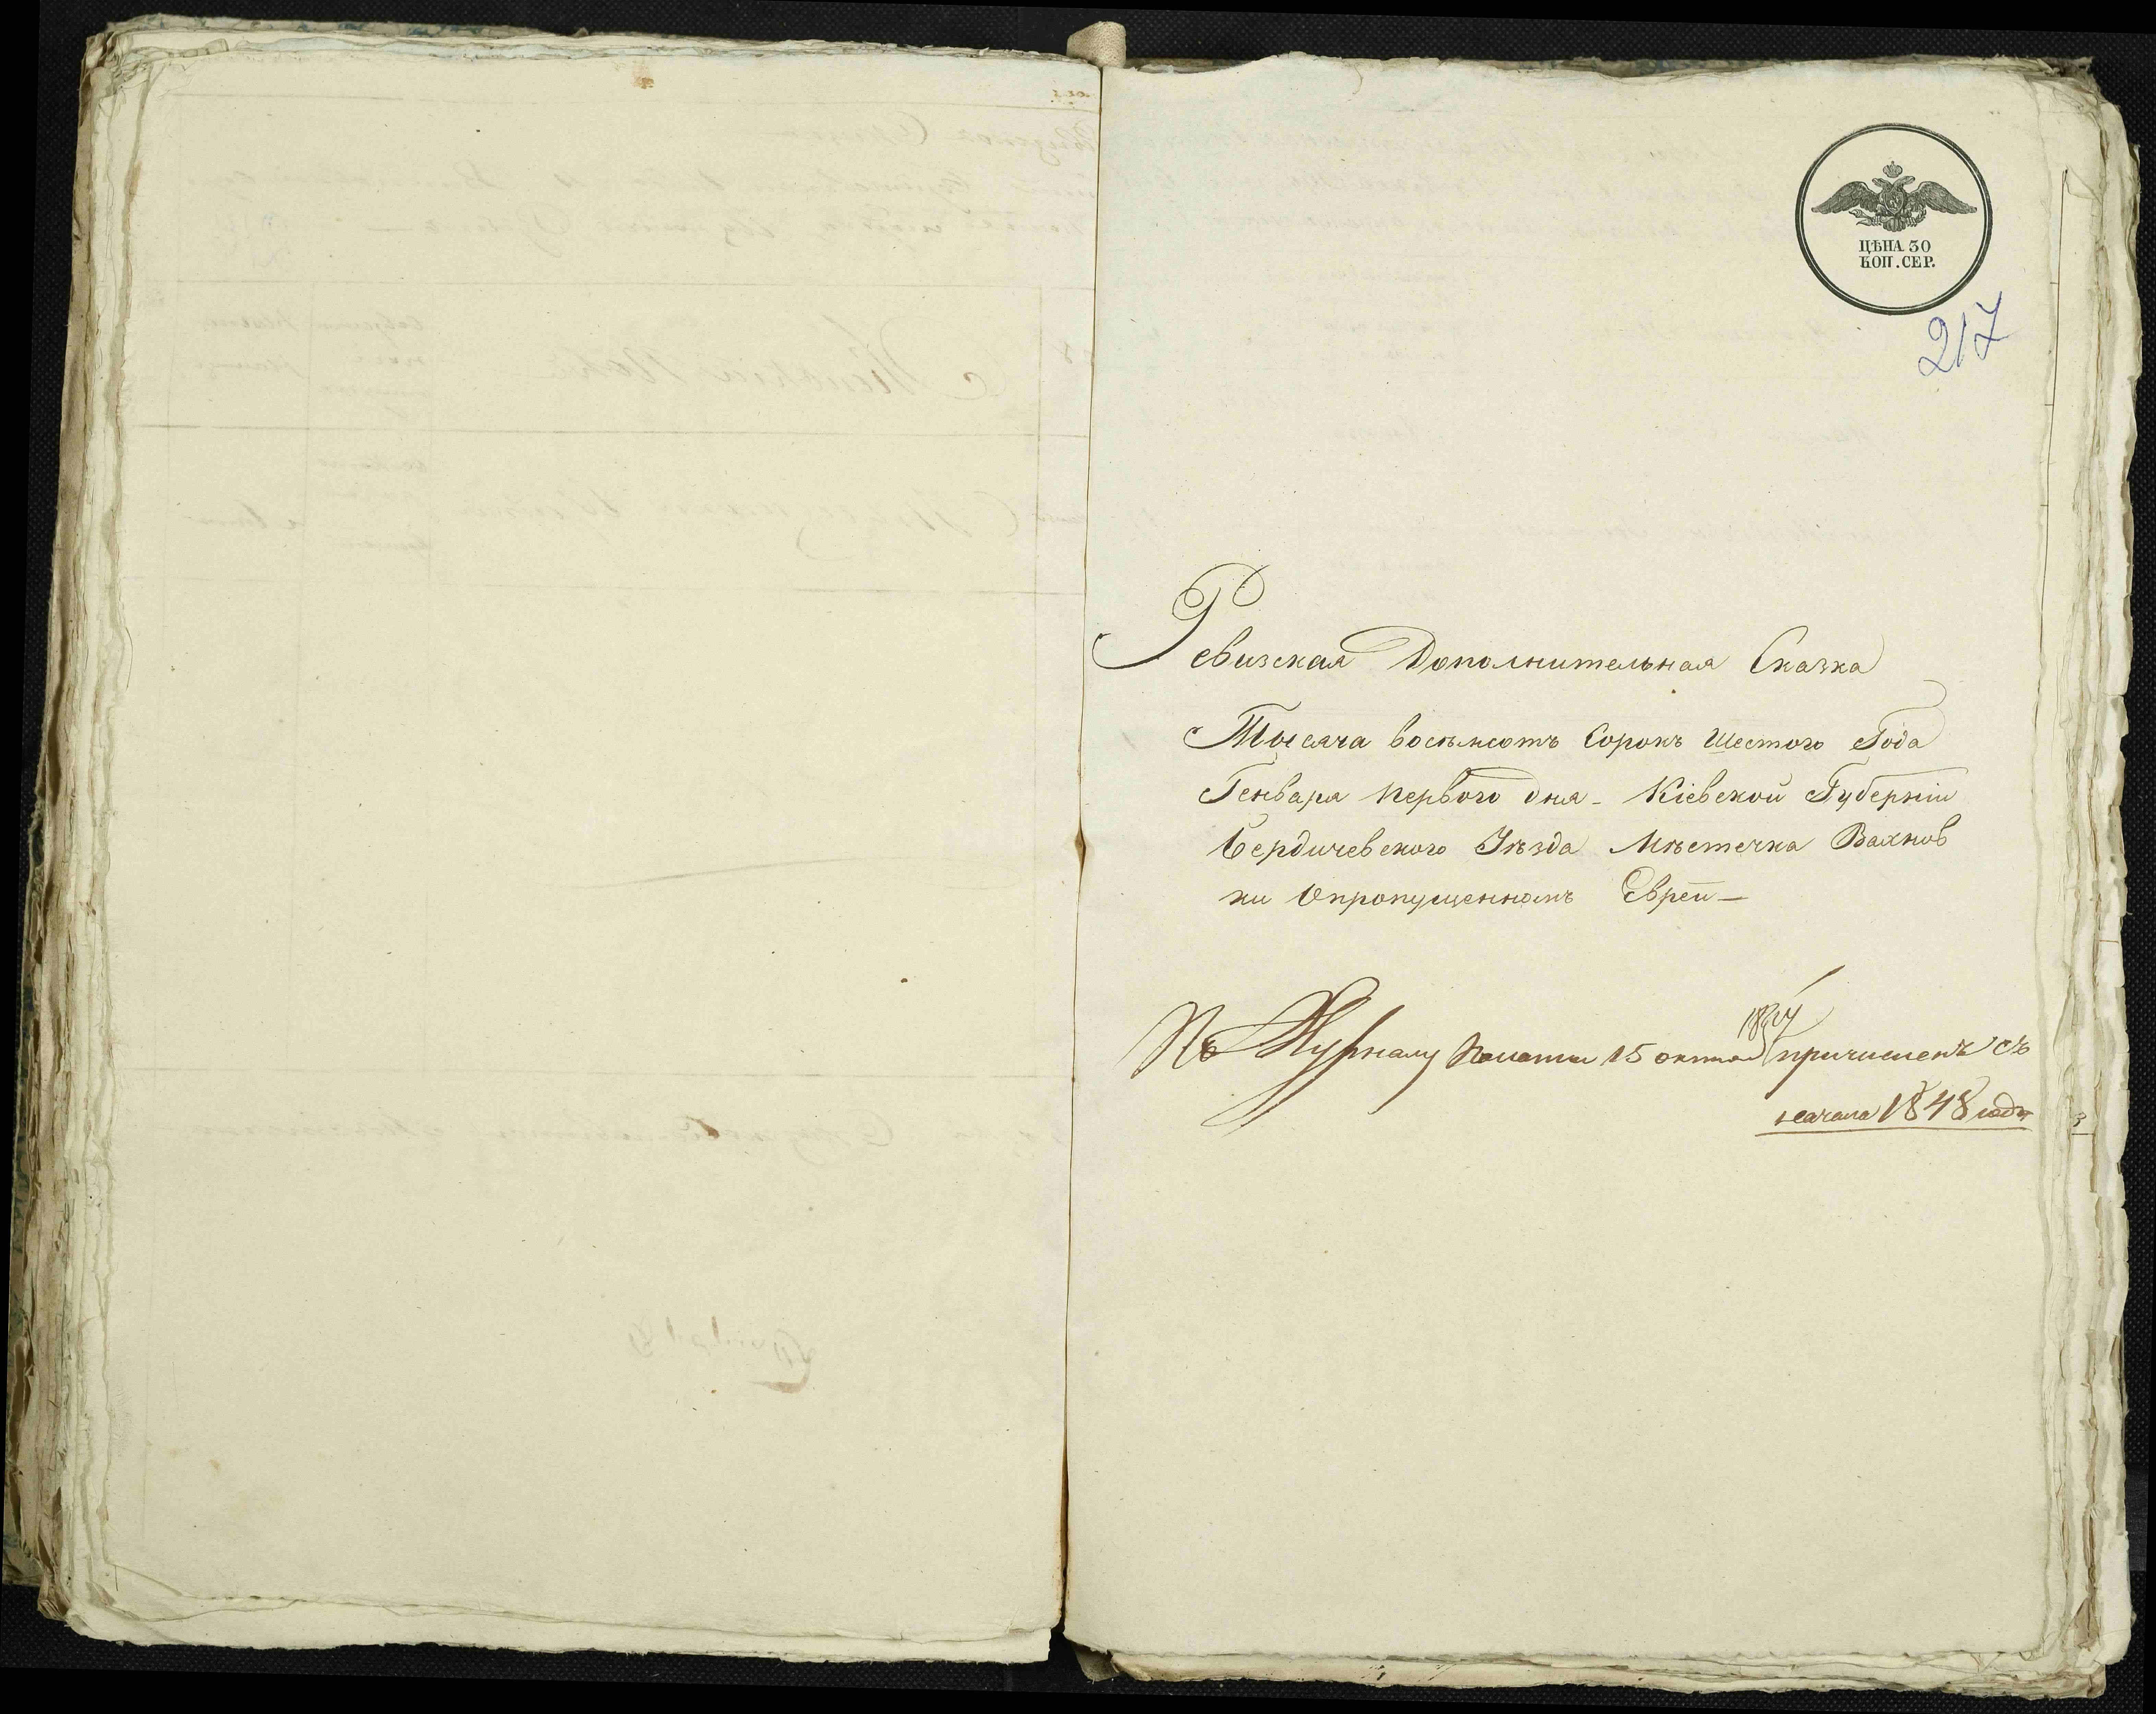 ЦѢНА 30
КОП. СЕР.
217
Ревизская Дополнительная Сказка
Тысяча восѣмсотъ Сорокъ Шестого Года
Генваря первого дня - Кіевской Губерніи
Бердичевского Уѣзда Мѣстечка Вахнов
ки Опропущенномъ Евреи —
По Журналу Палаты 15 октяб причисленъ съ
начала 1848 года